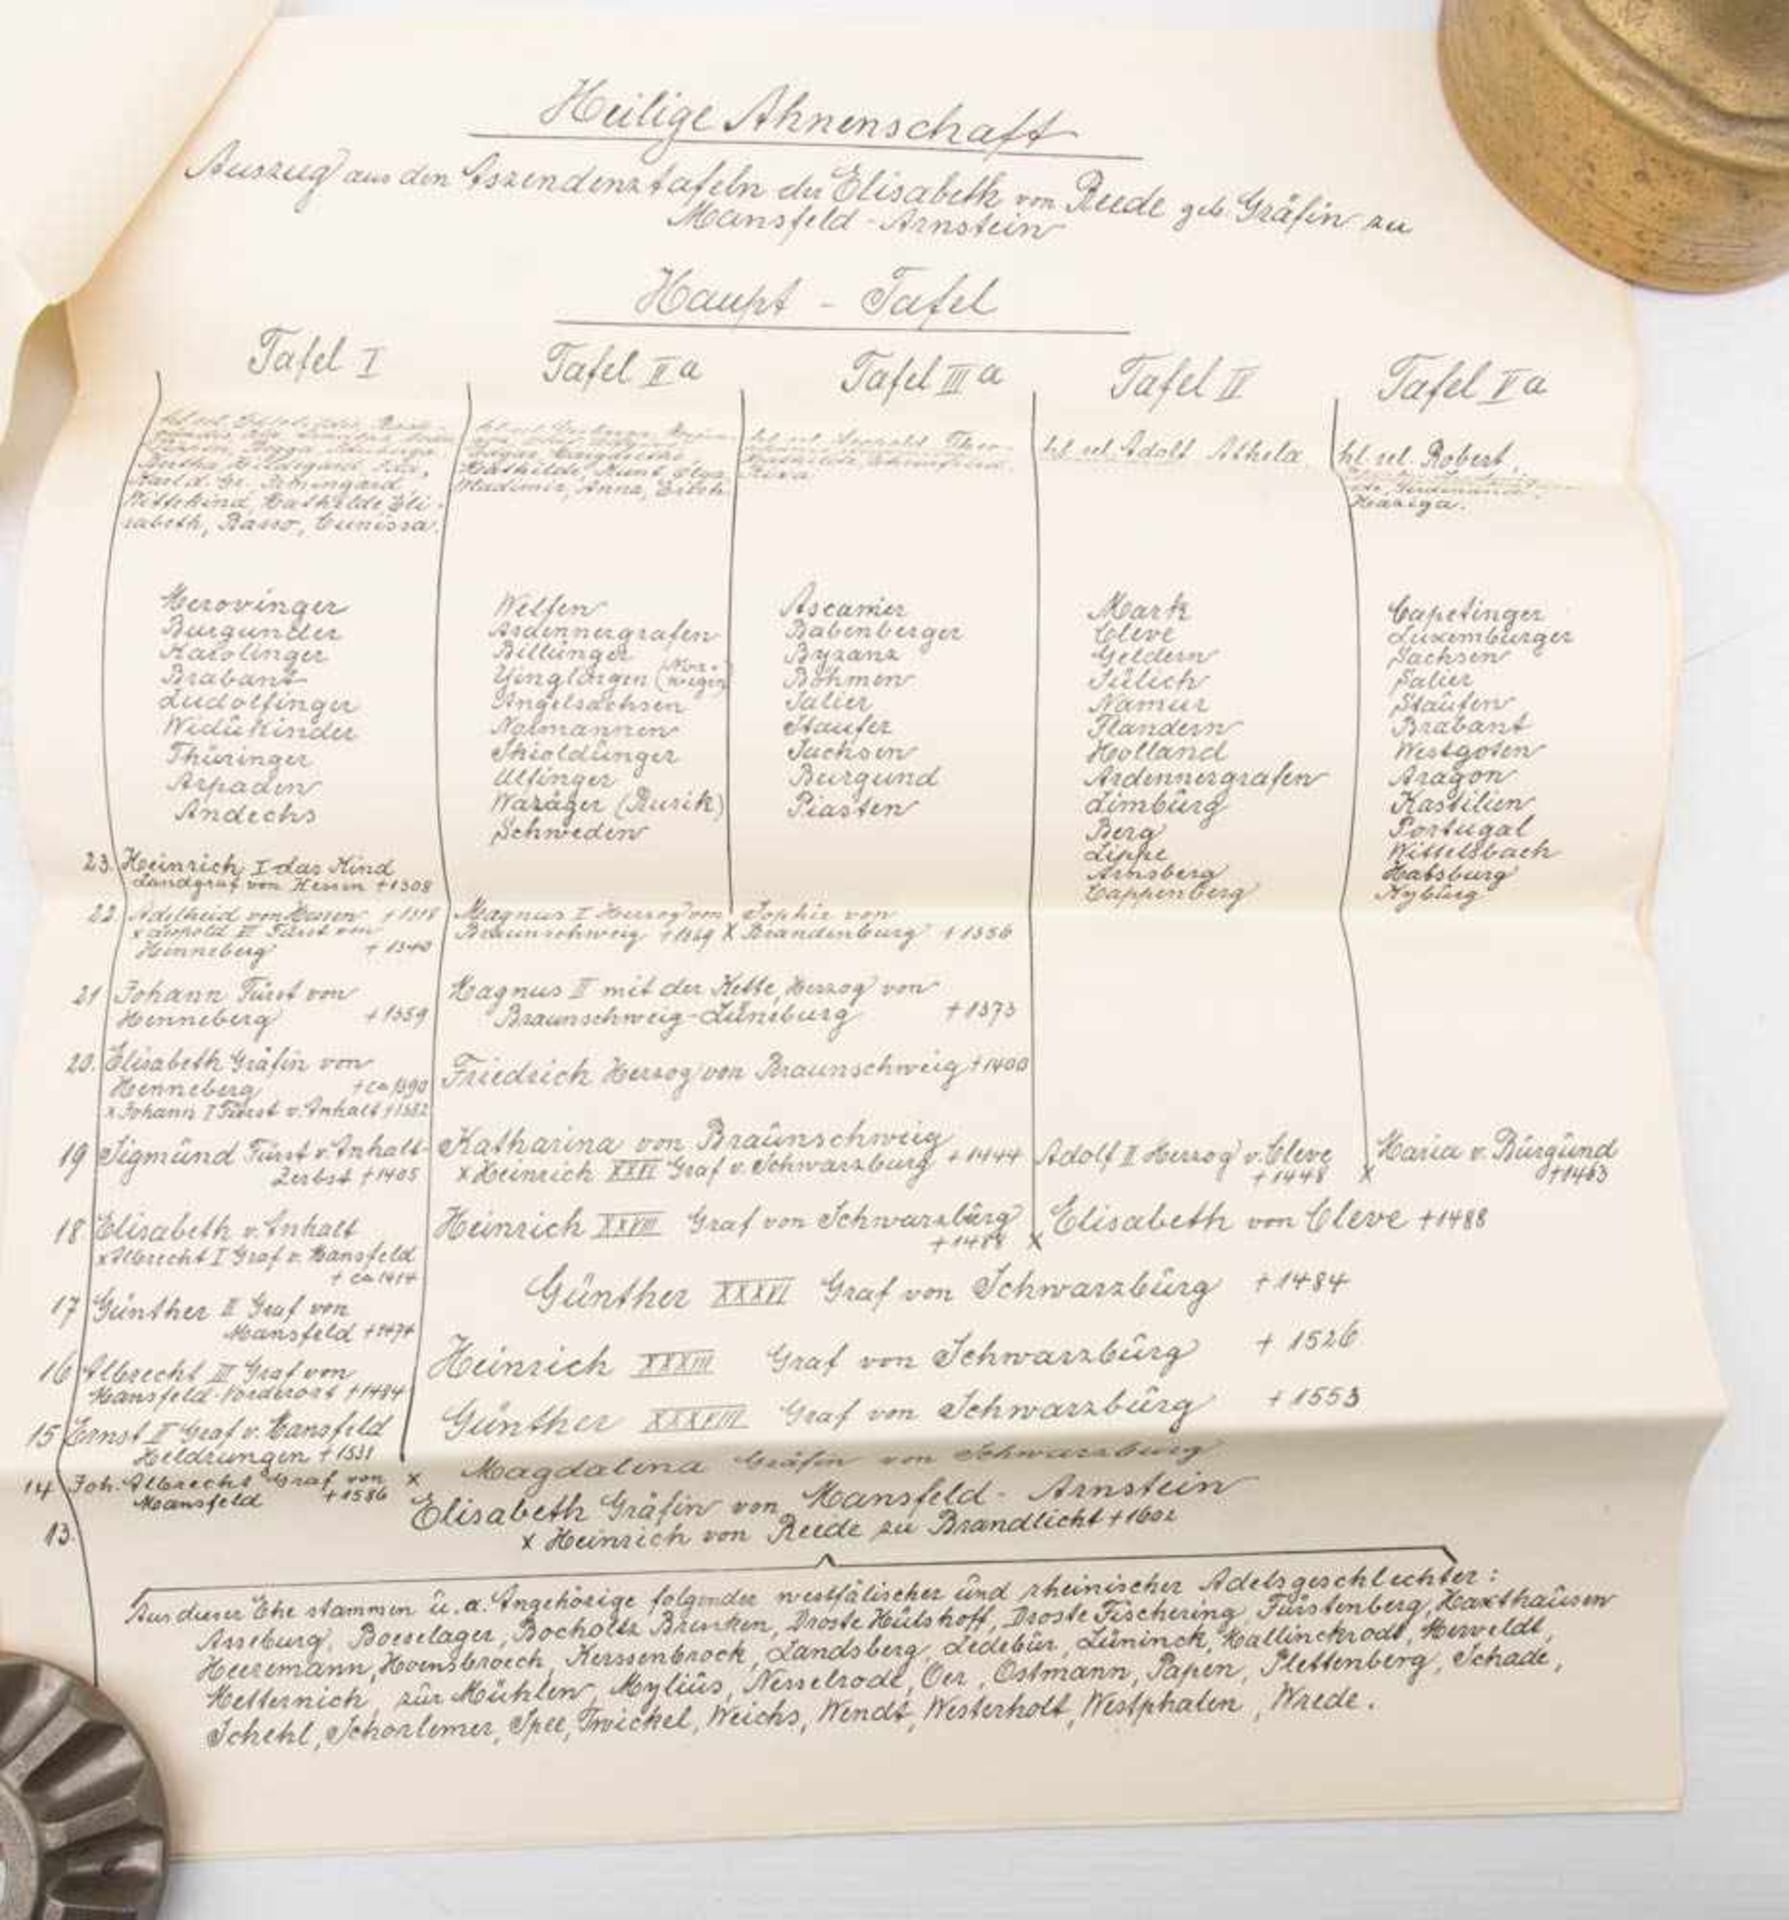 Heilige Ahnenschaft
Auszug aus den Aszendenztafeln der Elisabeth von Reede geb. Gräfin zu
Mansfeld-Arnstein
Haupt-Tafel
Tafel I
Karl d. Gr. Irmingard
Wittekind, Mathilde Eli-
sabeth, Basso, Cunissa.
Merovinger
Burgunder
Karolinger
Brabant
Ludolfinger
Widukinder
Thüringer
Arpaden
Andechs
Tafel II a
Mathilde, Knut, Olga
Wladimir, Anna, Erich
Welfen
Ardennergrafen
Billunger
Ynglingen (Nor-
wegen
Angelsachsen
Normannen
Skioldunger
Ulfinger
Waräger (Rurik)
Schweden
Tafel III a
Ascanier
Babenberger
Byzanz
Böhmen
Salier
Staufer
Sachsen
Burgund
Piasten
Tafel II
hl. sel. Adolf Athela
Mark
Cleve
Geldern
Jülich
Namur
Flandern
Holland
Ardennergrafen
Limburg
Berg
Lippe
Arnsberg
Cappenberg
Tafel V a
hl. sel. Robert,
Haziga.
Capetinger
Luxemburger
Sachsen
Salier
Staufen
Brabant
Westgoten
Aragon
Kastilien
Portugal
Wittelsbach
Habsburg
Kyburg
23. Heinrich I das Kind
Landgraf von Hessen +1308
22 Adelheid von Hessen
Henneberg +1340
Magnus I Herzog von
Braunschweig +1369 x
Sophie von
Brandenburg +1356
21 Johann Fürst von
Henneberg +1359
Magnus II mit der Kette, Herzog von
Braunschweig-Lüneburg +1373
20. Elisabeth Gräfin von
Henneberg +ca 1390
x Johann I Fürst v. Anhalt +1382
Friedrich Herzog von Braunschweig +1400
19 Sigmund Fürst v Anhalt-
Zerbst +1405
Katharina von Braunschweig +1444
x Heinrich XXVI Graf v. Schwarzburg
Adolf II Herzog v. Cleve
+1448 x
Maria v. Burgund
+1463
18. Elisabeth v. Anhalt
x Albrecht I Graf v. Mansfeld
+ ca 1414
Heinrich XXVII Graf von Schwarzburg
x Elisabeth von Cleve +1488
17 Günther II Graf von
Mansfeld +1474
Günther XXXVI Graf von Schwarzburg +1484
16 Albrecht III Graf von
Mansfeld-Vorderort +1484
Heinrich XXXIII Graf von Schwarzburg +1526
15 Ernst II Graf v. Mansfeld
Heldrungen +1531
Günther XXXVIII Graf von Schwarzburg +1553
14 Joh. Albrecht Graf von
Mansfeld +1586
x Magdalena Gräfin von Schwarzburg
13. Elisabeth Gräfin von Mansfeld-Arnstein
x Heinrich von Reede zu Brandlicht +1602
Aus dieser Ehe stammen u. a. Angehörige folgender westfälischer und rheinischer Adelsgeschlechter:
Asseburg, Boeselager, Bocholtz Brenken, Droste Hülshoff, Droste Fischering, Fürstenberg, Haxthausen
Heeremann, Hoensbroech, Kerssenbrock, Landsberg, Ledebur, Lüninck, Mallinckrodt, Merveldt,
Metternich, zur Mühlen, Mylius, Nesselrode, Oer, Ostmann, Papen, Plettenberg, Schade,
Schehl, Schorlemer, Spee, Twickel, Weichs, Wendt, Westerholt, Westphalen, Wrede.